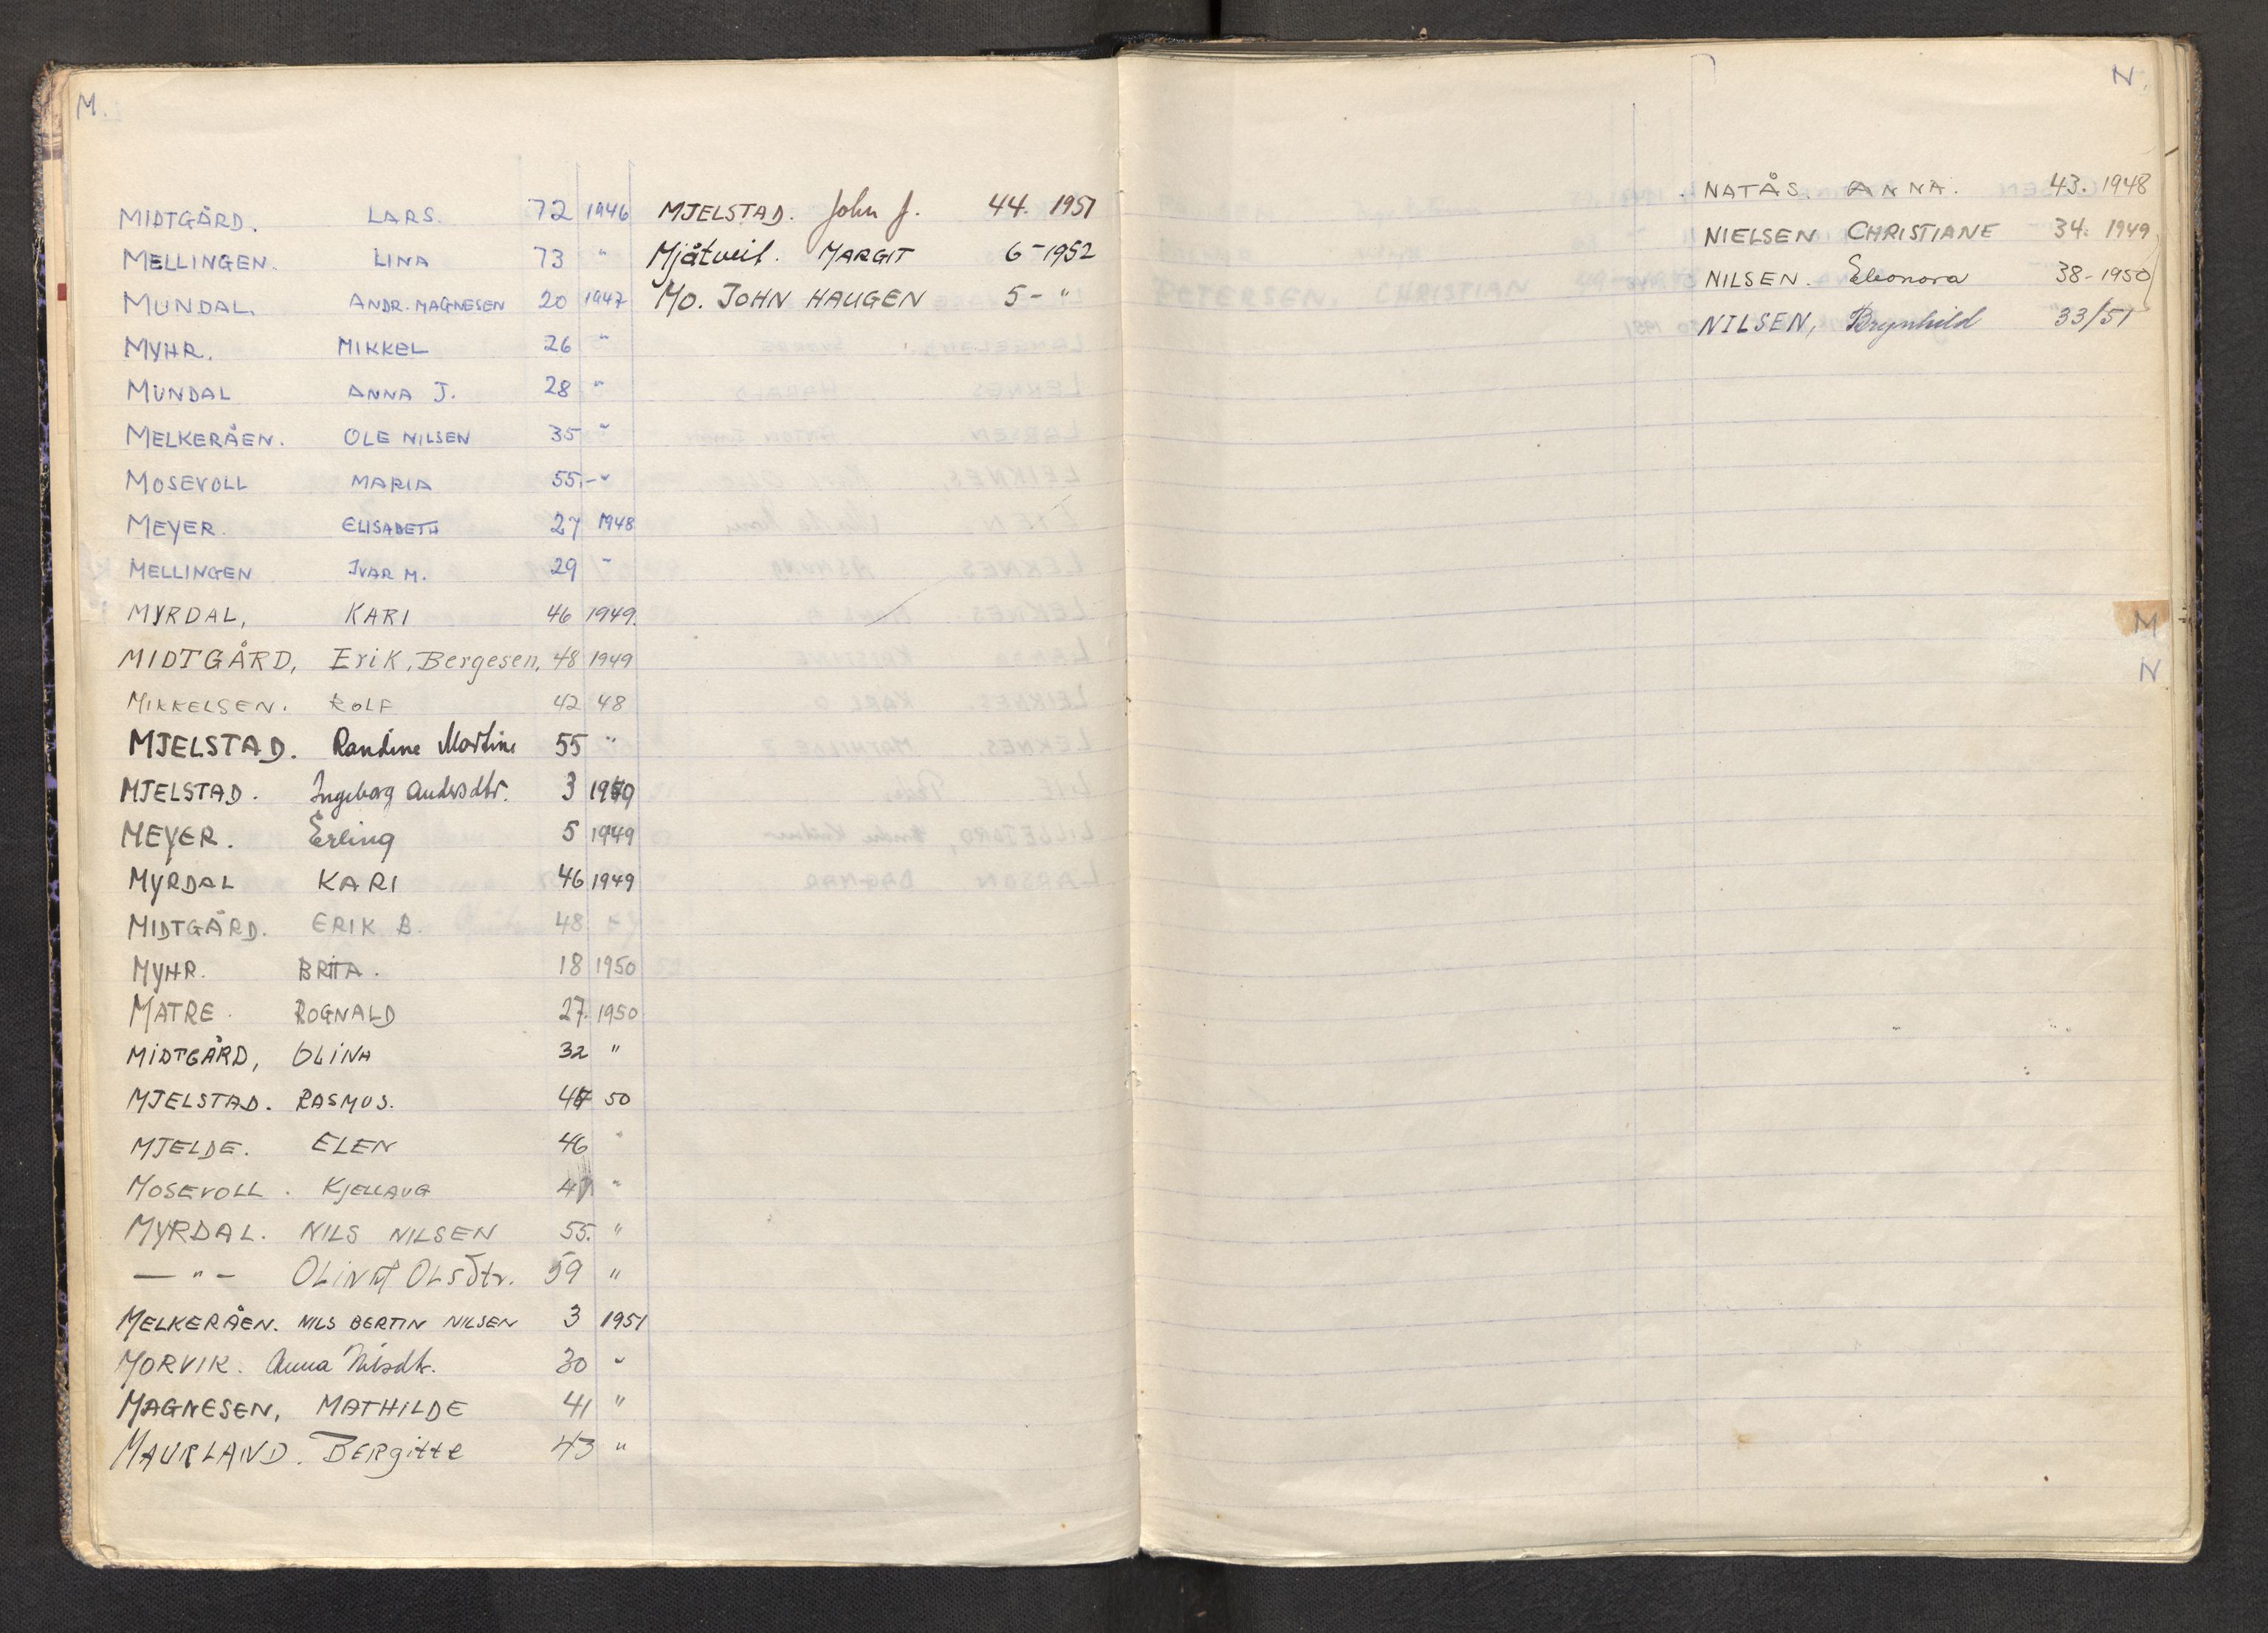 M.
MIDTGÅRD. LARS. 72 1946
MELLINGEN. LINA 73 "
MUNDAL. ANDR. MAGNESEN 20 1947
MYHR. MIKKEL 26 "
MUNDAL ANNA J. 28 "
MELKERÅEN. OLE NILSEN 35 "
MOSEVOLL MARIA 55.-"
MEYER. ELISABETH 27 1948
MELLINGEN IVAR M. 29 "
MYRDAL, KARI 46 1949.
MIDTGÅRD, Erik, Bergesen, 48 1949
MIKKELSEN. ROLF 42 48
MJELSTAD. Randine Martine 55 "
MJELSTAD. Ingeborg Andersdtr. 3
MEYER. Erling 5 1949
MYRDAL KARI 46 1949
MIDTGÅRD. ERIK B. 48
MYHR. BRITA. 18 1950
MATRE. ROGNALD 27. 1950
MIDTGÅRD, OLINA 32 "
MJELSTAD. RASMUS. 50
MJELDE. ELEN 46 "
MOSEVOLL. KJELLAUG "
MYRDAL. NILS NILSEN 55. "
— " — Olsdtr. 59 "
MELKERÅEN. NILS BERTIN NILSEN 3 1951
MORVIK. Anna Nilsdtr. 30 "
MAGNESEN, MATHILDE 41 "
MAURLAND. BERgitte 43 "
MJELSTAD. John J. 44. 1951
Mjåtveit. MARGIT 6-1952
MO. JOHN HAUGEN 5-"
N.
NATÅS. ANNA. 43. 1948
NIELSEN CHRISTIANE 34. 1949
NILSEN. Eleonora 38-1950
NILSEN, Brynhild 33/51
M
N